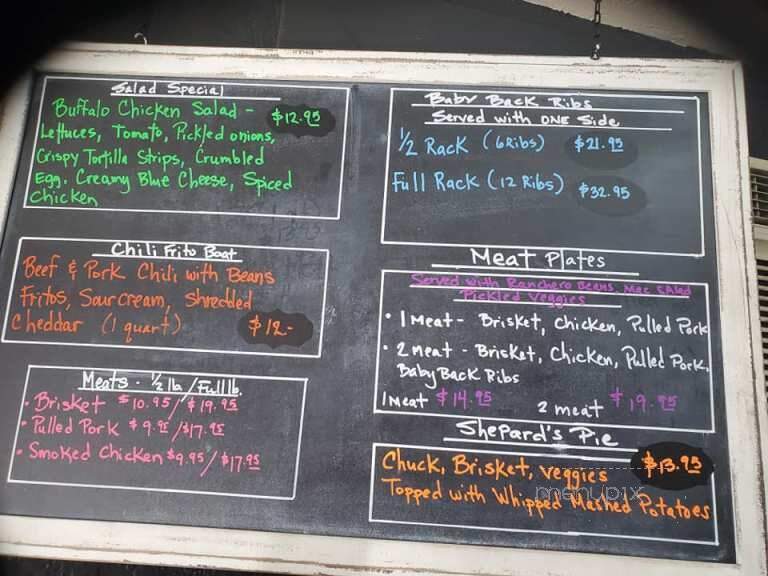 Salad Special
Buffalo Chicken Salad - $12.95
Lettuces, Tomato, Pickled onions,
Crispy Tortilla Strips, Crumbled
Egg, Creamy Blue Cheese, Spiced
Chicken
Chili Frito Boat
Beef & Pork Chili with Beans
Fritos, Sour cream, Shredded
Cheddar (1 quart) $12-
Meats - 1/2 lb / Full lb.
• Brisket $10.95 / $19.95
• Pulled Pork $9.95 / $17.95
• Smoked Chicken $9.95 / $17.95
Baby Back Ribs
Served with ONE Side
1/2 Rack (6 Ribs) $21.95
Full Rack (12 Ribs) $32.95
Meat Plates
Served with Ranchero Beans, Mac Salad
Pickled Veggies
• 1 Meat - Brisket, Chicken, Pulled Pork
• 2 meat - Brisket, Chicken, Pulled Pork,
Baby Back Ribs
1 Meat $14.95 2 meat $19.95
Shepard's Pie
Chuck, Brisket, veggies $13.95
Topped with Whipped Mashed Potatoes
menupix